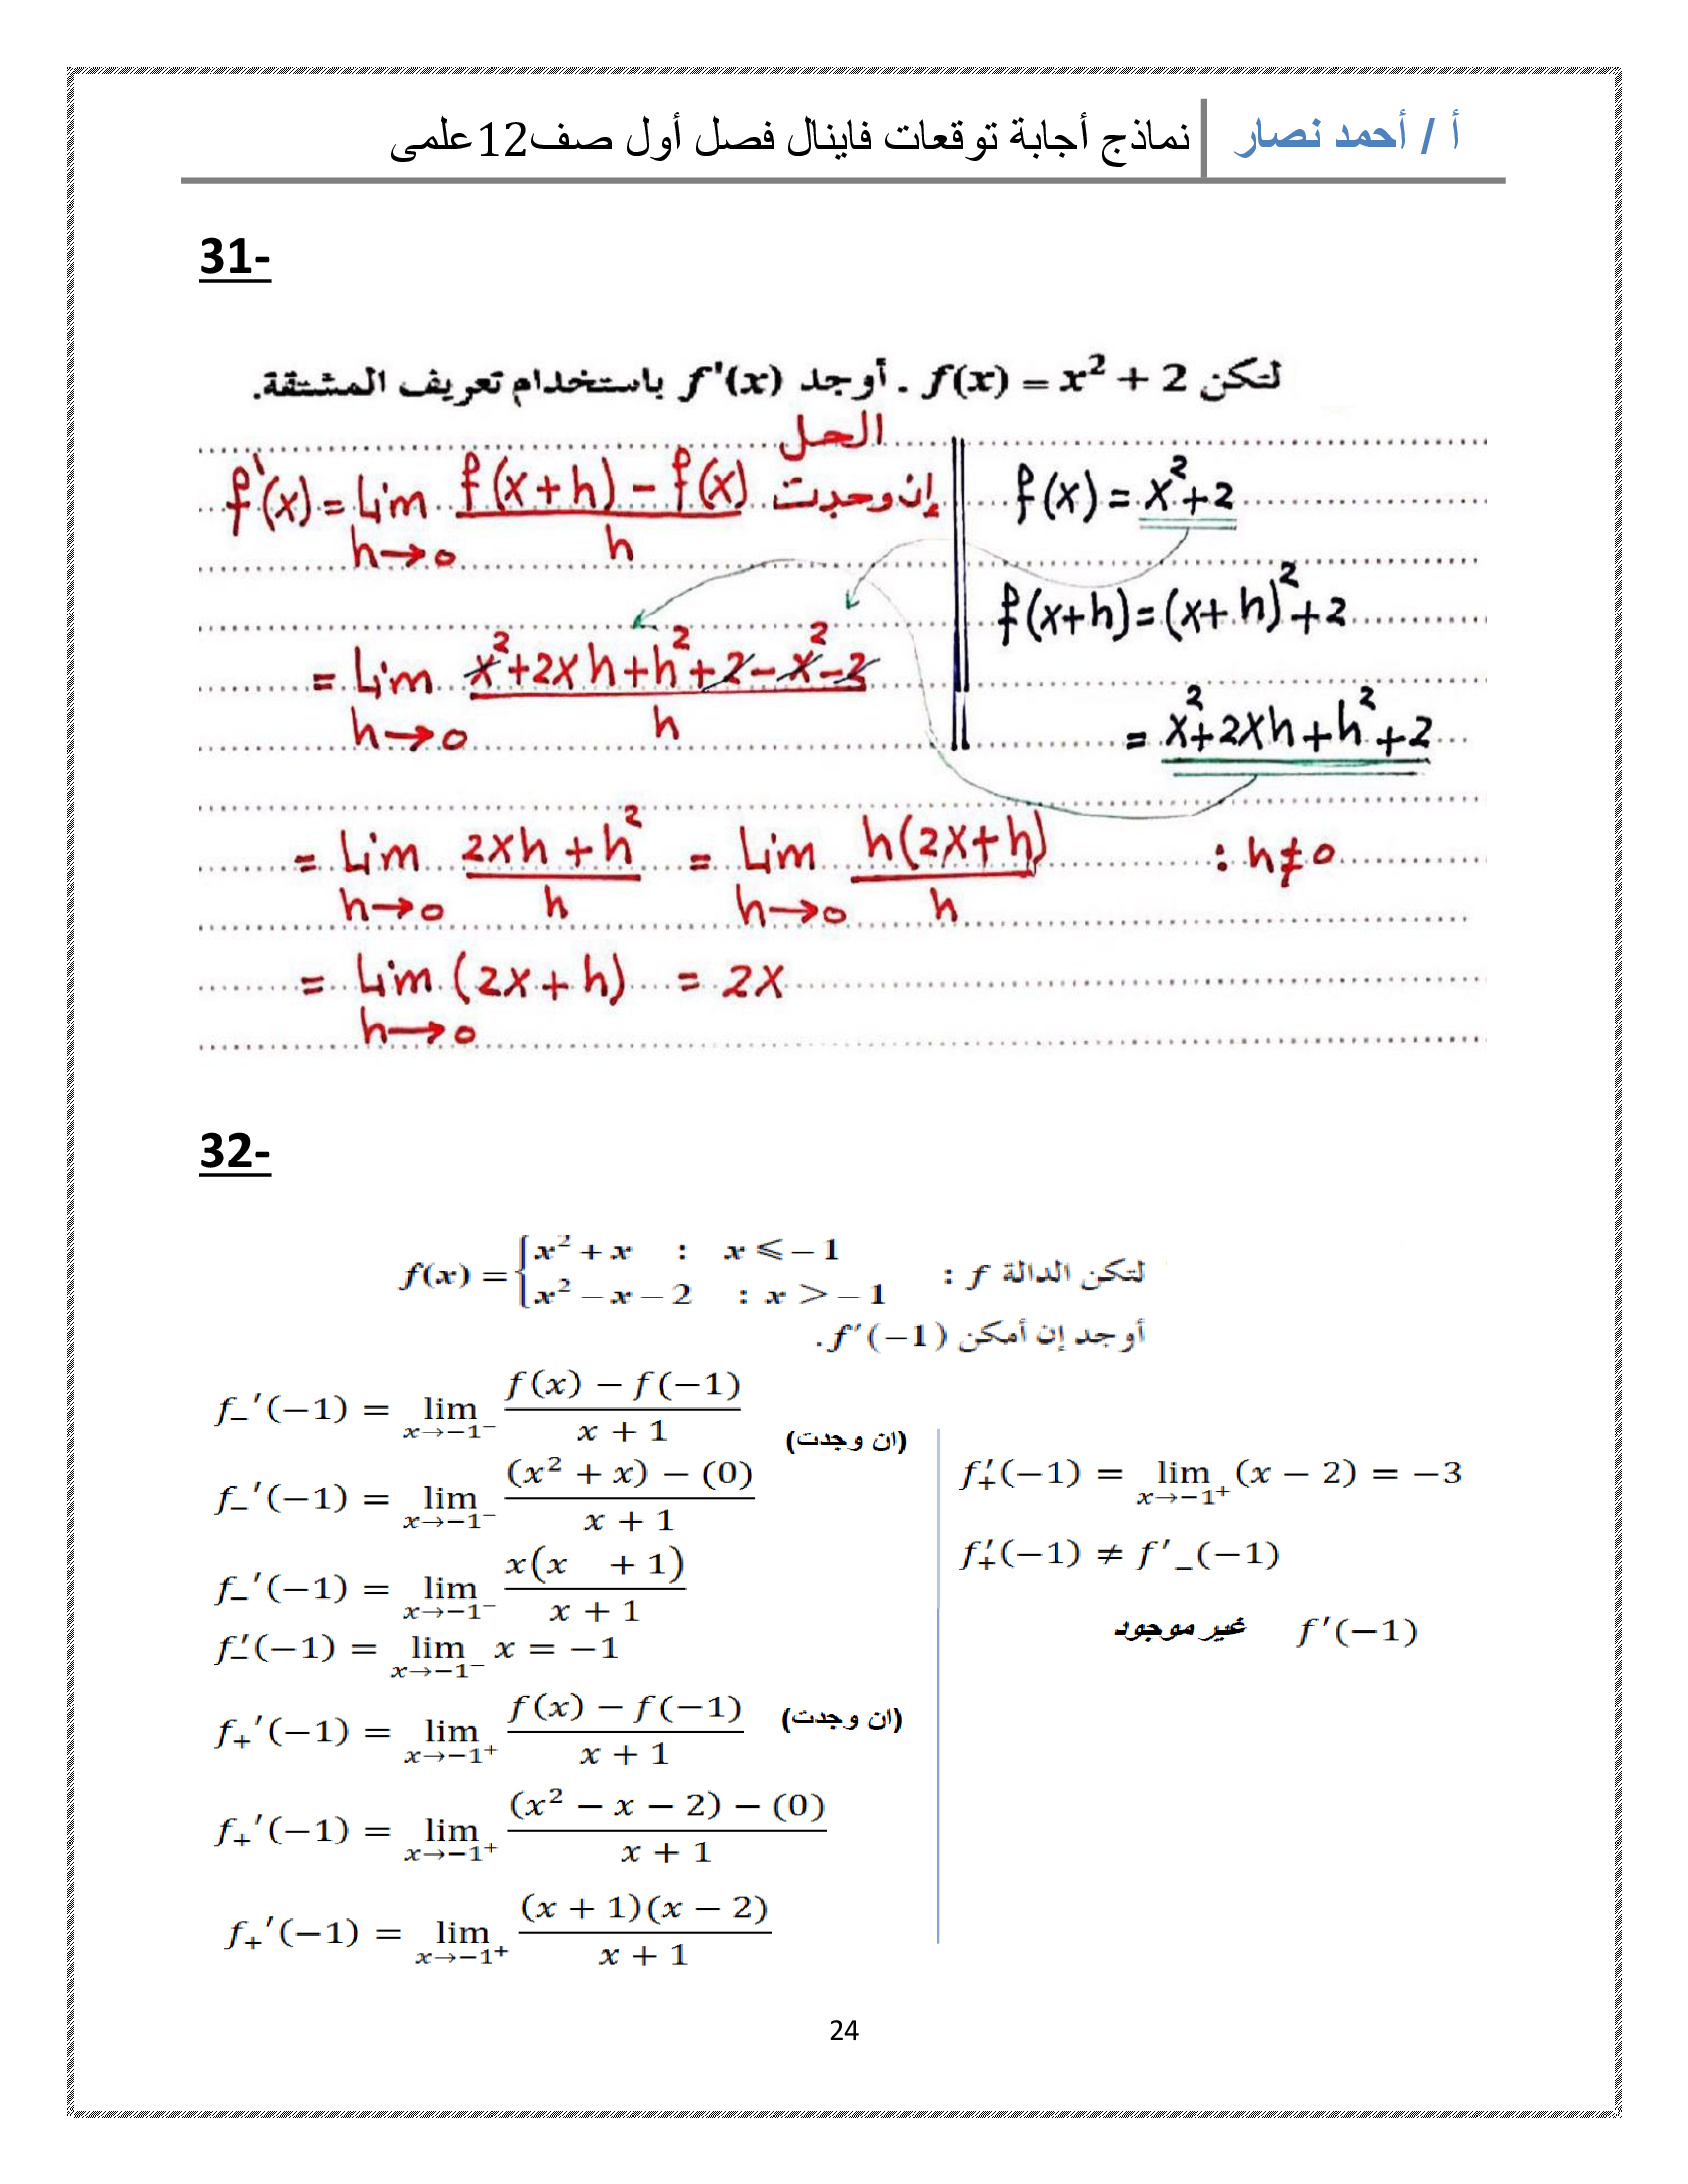 أ / أحمد نصار | نماذج أجابة توقعات فاينال فصل أول صف12علمى
31-
لتكن f(x) = x² + 2 . أوجد f'(x) باستخدام تعريف المشتقة.
الحل
f'(x) = Lim h→0 (f(x+h) - f(x))/h إن وجدت
f(x) = x²+2
f(x+h) = (x+h)²+2
= Lim h→0 (x²+2xh+h²+2-x²-2)/h
= x²+2xh+h²+2
= Lim h→0 (2xh+h²)/h = Lim h→0 h(2x+h)/h : h≠0
= Lim h→0 (2x+h) = 2x
32-
لتكن الدالة f : f(x) = { x² + x : x ⩽ −1
x² − x − 2 : x > −1
أوجد إن أمكن f′(−1).
f₋′(−1) = lim x→−1⁻ (f(x) − f(−1))/(x + 1) (ان وجدت)
f₋′(−1) = lim x→−1⁻ ((x² + x) − (0))/(x + 1)
f₋′(−1) = lim x→−1⁻ x(x + 1)/(x + 1)
f₋′(−1) = lim x→−1⁻ x = −1
f₊′(−1) = lim x→−1⁺ (f(x) − f(−1))/(x + 1) (ان وجدت)
f₊′(−1) = lim x→−1⁺ ((x² − x − 2) − (0))/(x + 1)
f₊′(−1) = lim x→−1⁺ (x + 1)(x − 2)/(x + 1)
f₊′(−1) = lim x→−1⁺ (x − 2) = −3
f₊′(−1) ≠ f′₋(−1)
f′(−1) غير موجود
24